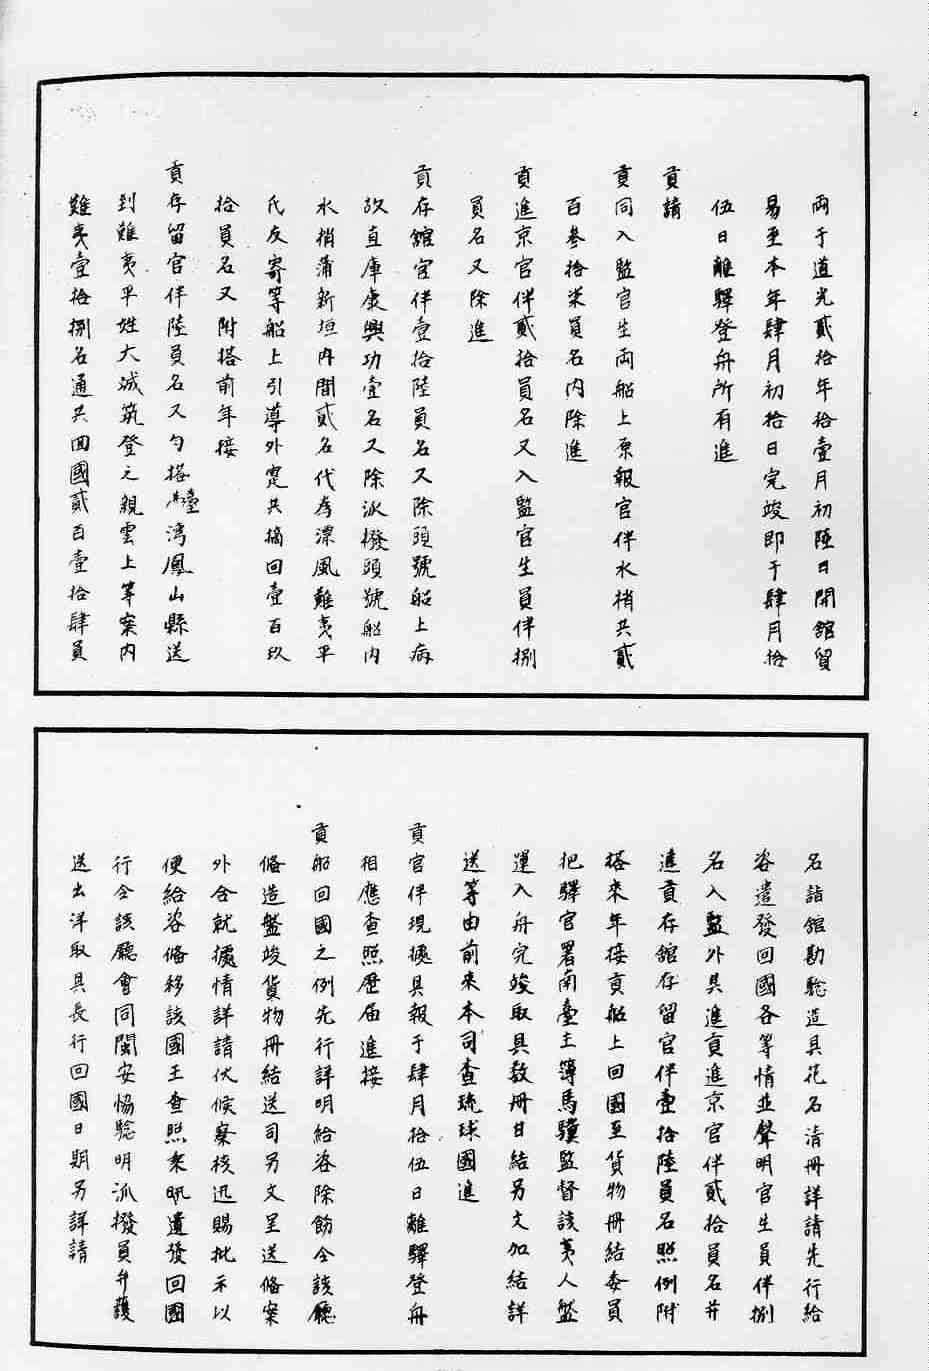 両于道光貳拾年拾壹月初陸日開舘貿
易至本年肆月初拾日完竣即于肆月拾
伍日離驛登舟所有進
貢請
貢同入監官生両船上原報官伴水梢共貳
百叁拾柒員名内除進
貢進京官伴貳拾員名又入監官生員伴捌
員名又除進
貢存舘官伴壹拾陸員名又除頭號船上病
故直庫康興功壹名又除派撥頭號船内
水梢蒲新垣内間貳名代存漂風難夷平
氏友寄等船上引導外寔共摘回壹百玖
拾員名又附搭前年接
貢存留官伴陸員名又勻搭臺湾鳳山縣送
到難夷平姓大城筑登之親雲上等案内
難夷壹拾捌名通共回國貳百壹拾肆員
名詣舘勘騐造具花名清冊詳請先行給
咨遣發回國各等情並聲明官生員伴捌
名入監外其進貢進京官伴貳拾員名并
進貢存舘存留官伴壹拾陸員名照例附
搭來年接貢船上回國至貨物冊結委員
把驛官署南臺主簿馬驥監督該夷人盤
運入舟完竣取具敎冊甘結另文加結詳
送等由前來本司查琉球國進
貢官伴現據具報于肆月拾伍日離驛登舟
相應查照歷届進接
貢船回國之例先行詳明給咨除飭令該廳
俻造盤竣貨物冊結送司另文呈送俻案
外合就據情詳請伏候察核迅賜批示以
便給咨俻移該國王查照來夷遣發回國
行令該廳會同閩安恊騐明派撥員弁護
送出洋取具長行回國日期另詳請